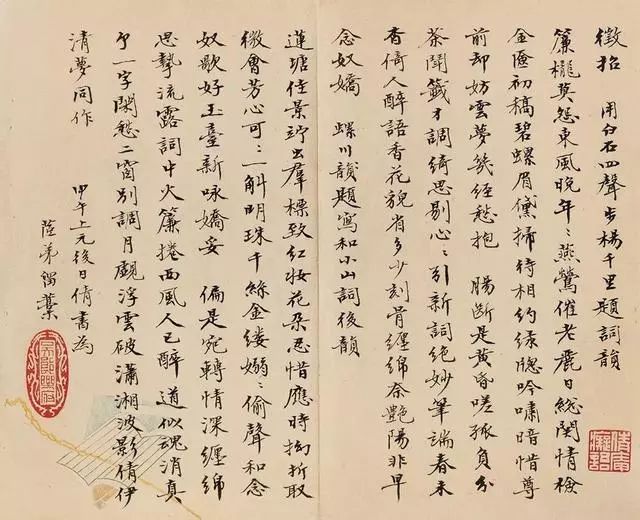 徵招 用白石四聲步楊千里題詞韻
簾櫳莫怨東風晚年〻燕鶯催老麗日總關情檢
金匳初稿碧螺眉黛掃待相約綠牕吟嘯暗惜尊
前却妨雲夢幾經愁抱 腸斷是黃昏嗟孤負分
茶鬪籤才調綺思剔心〻引新詞絕妙筆端春未
香倚人醉語香花貌省多少刻骨纏綿奈艷陽非早
念奴嬌 螺川韻題寫和小山詞後韻
蓮塘佳景竚出羣標致紅妝花朶忍惜應時拗折取
微會芳心可〻一斛明珠千絲金縷嫋〻偷聲和念
奴歌好玉臺新咏嬌妥 偏是宛轉情深纏綿
思摯流露詞中火簾捲西風人已醉 道似魂消真
个一字閑愁二窗別調月覷浮雲破瀟湘波影倩伊
清夢同作
甲午上元後日倩書為
弟留葉